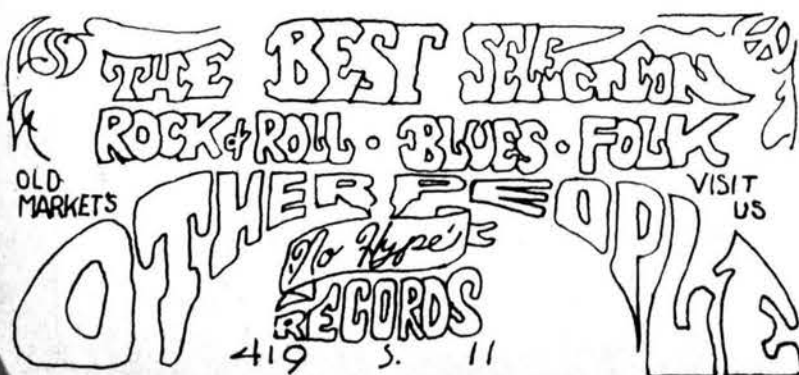 THE BEST SELECTION
ROCK & ROLL • BLUES • FOLK
OLD MARKET'S
VISIT US
OTHER PEOPLE
No Hype
RECORDS
419 S. 11